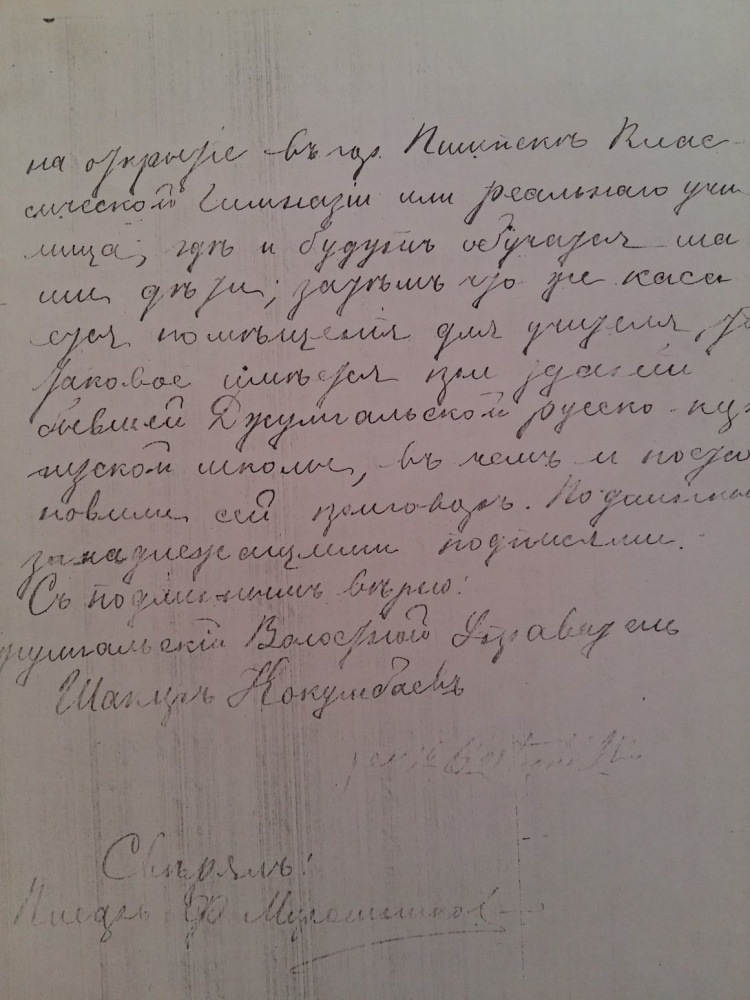 на открытіе въ гор. Пишпекѣ Клас-
сической Гимназіи или реальнаго учи
лища, гдѣ и будутъ обучатся на
ши дѣти; затѣмъ что же каса
ется помѣщенія для учителя,
таковое имѣется при зданіи
бывшей Джумгальской русско-кир
гизской школы, въ чемъ и поста
новили сей приговоръ. Подлинный
за надлежащими подписями.
Съ подлиннымъ вѣрно:
Джумгальскій Волостной Управитель
Нокумбаевъ
Свѣрялъ:
Писарь